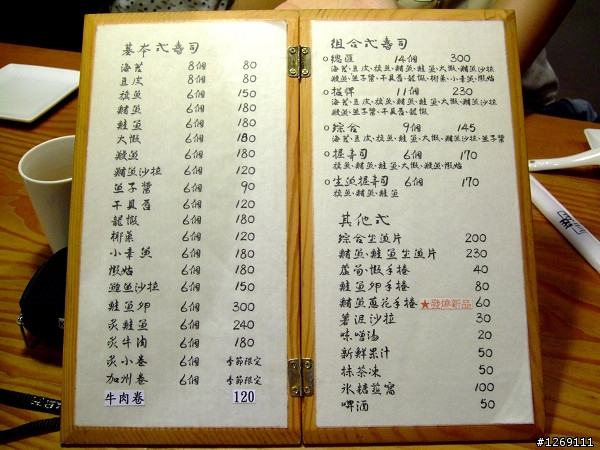 基本式壽司
海苔 8個 80
豆皮 8個 80
旗魚 6個 150
鮪魚 6個 180
鮭魚 6個 180
大蝦 6個 180
鰻魚 6個 180
鮪魚沙拉 6個 120
魚子醬 6個 90
干貝唇 6個 120
龍蝦 6個 180
柳葉 6個 120
小章魚 6個 180
蝦蛄 6個 180
鮭魚沙拉 6個 150
鮭魚卵 6個 300
炙鮭魚 6個 240
炙牛肉 6個 180
炙小卷 6個 季節限定
加州卷 6個 季節限定
牛肉卷 120
組合式壽司
總匯 14個 300
海苔、豆皮、旗魚、鮪魚、鮭魚、大蝦、鮪魚沙拉
鰻魚、魚子醬、干貝唇、龍蝦、柳葉、小章魚、蝦蛄
招牌 11個 230
海苔、豆皮、旗魚、鮪魚、鮭魚、大蝦、鮪魚沙拉
鰻魚、魚子醬、干貝唇、龍蝦
綜合 9個 145
海苔、豆皮、旗魚、鮭魚、大蝦、鮪魚沙拉、魚子醬
握壽司 6個 170
旗魚、鮪魚、鮭魚、大蝦、鰻魚、蝦蛄
生魚握壽司 6個 170
旗魚、鮪魚、鮭魚
其他式
綜合生魚片 200
鮪魚、鮭魚生魚片 230
蘆筍、蝦手捲 40
鮭魚卵手捲 80
鮪魚蔥花手捲 ★發燒新品 60
薯泥沙拉 30
味噌湯 20
新鮮果汁 50
抹茶凍 50
冰糖燕窩 100
啤酒 50
#1269111